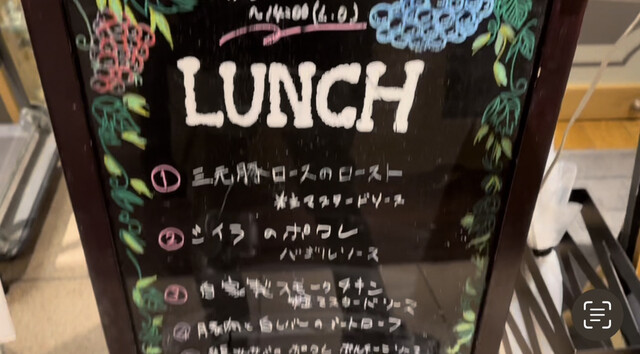 ~14:00(L.O)
LUNCH
① 三元豚ロースのロースト
粒マスタードソース
② シイラのポワレ
バジルソース
③ 自家製スモークチキン
粒マスタードソース
④ 豚肉と白レバーのミートローフ